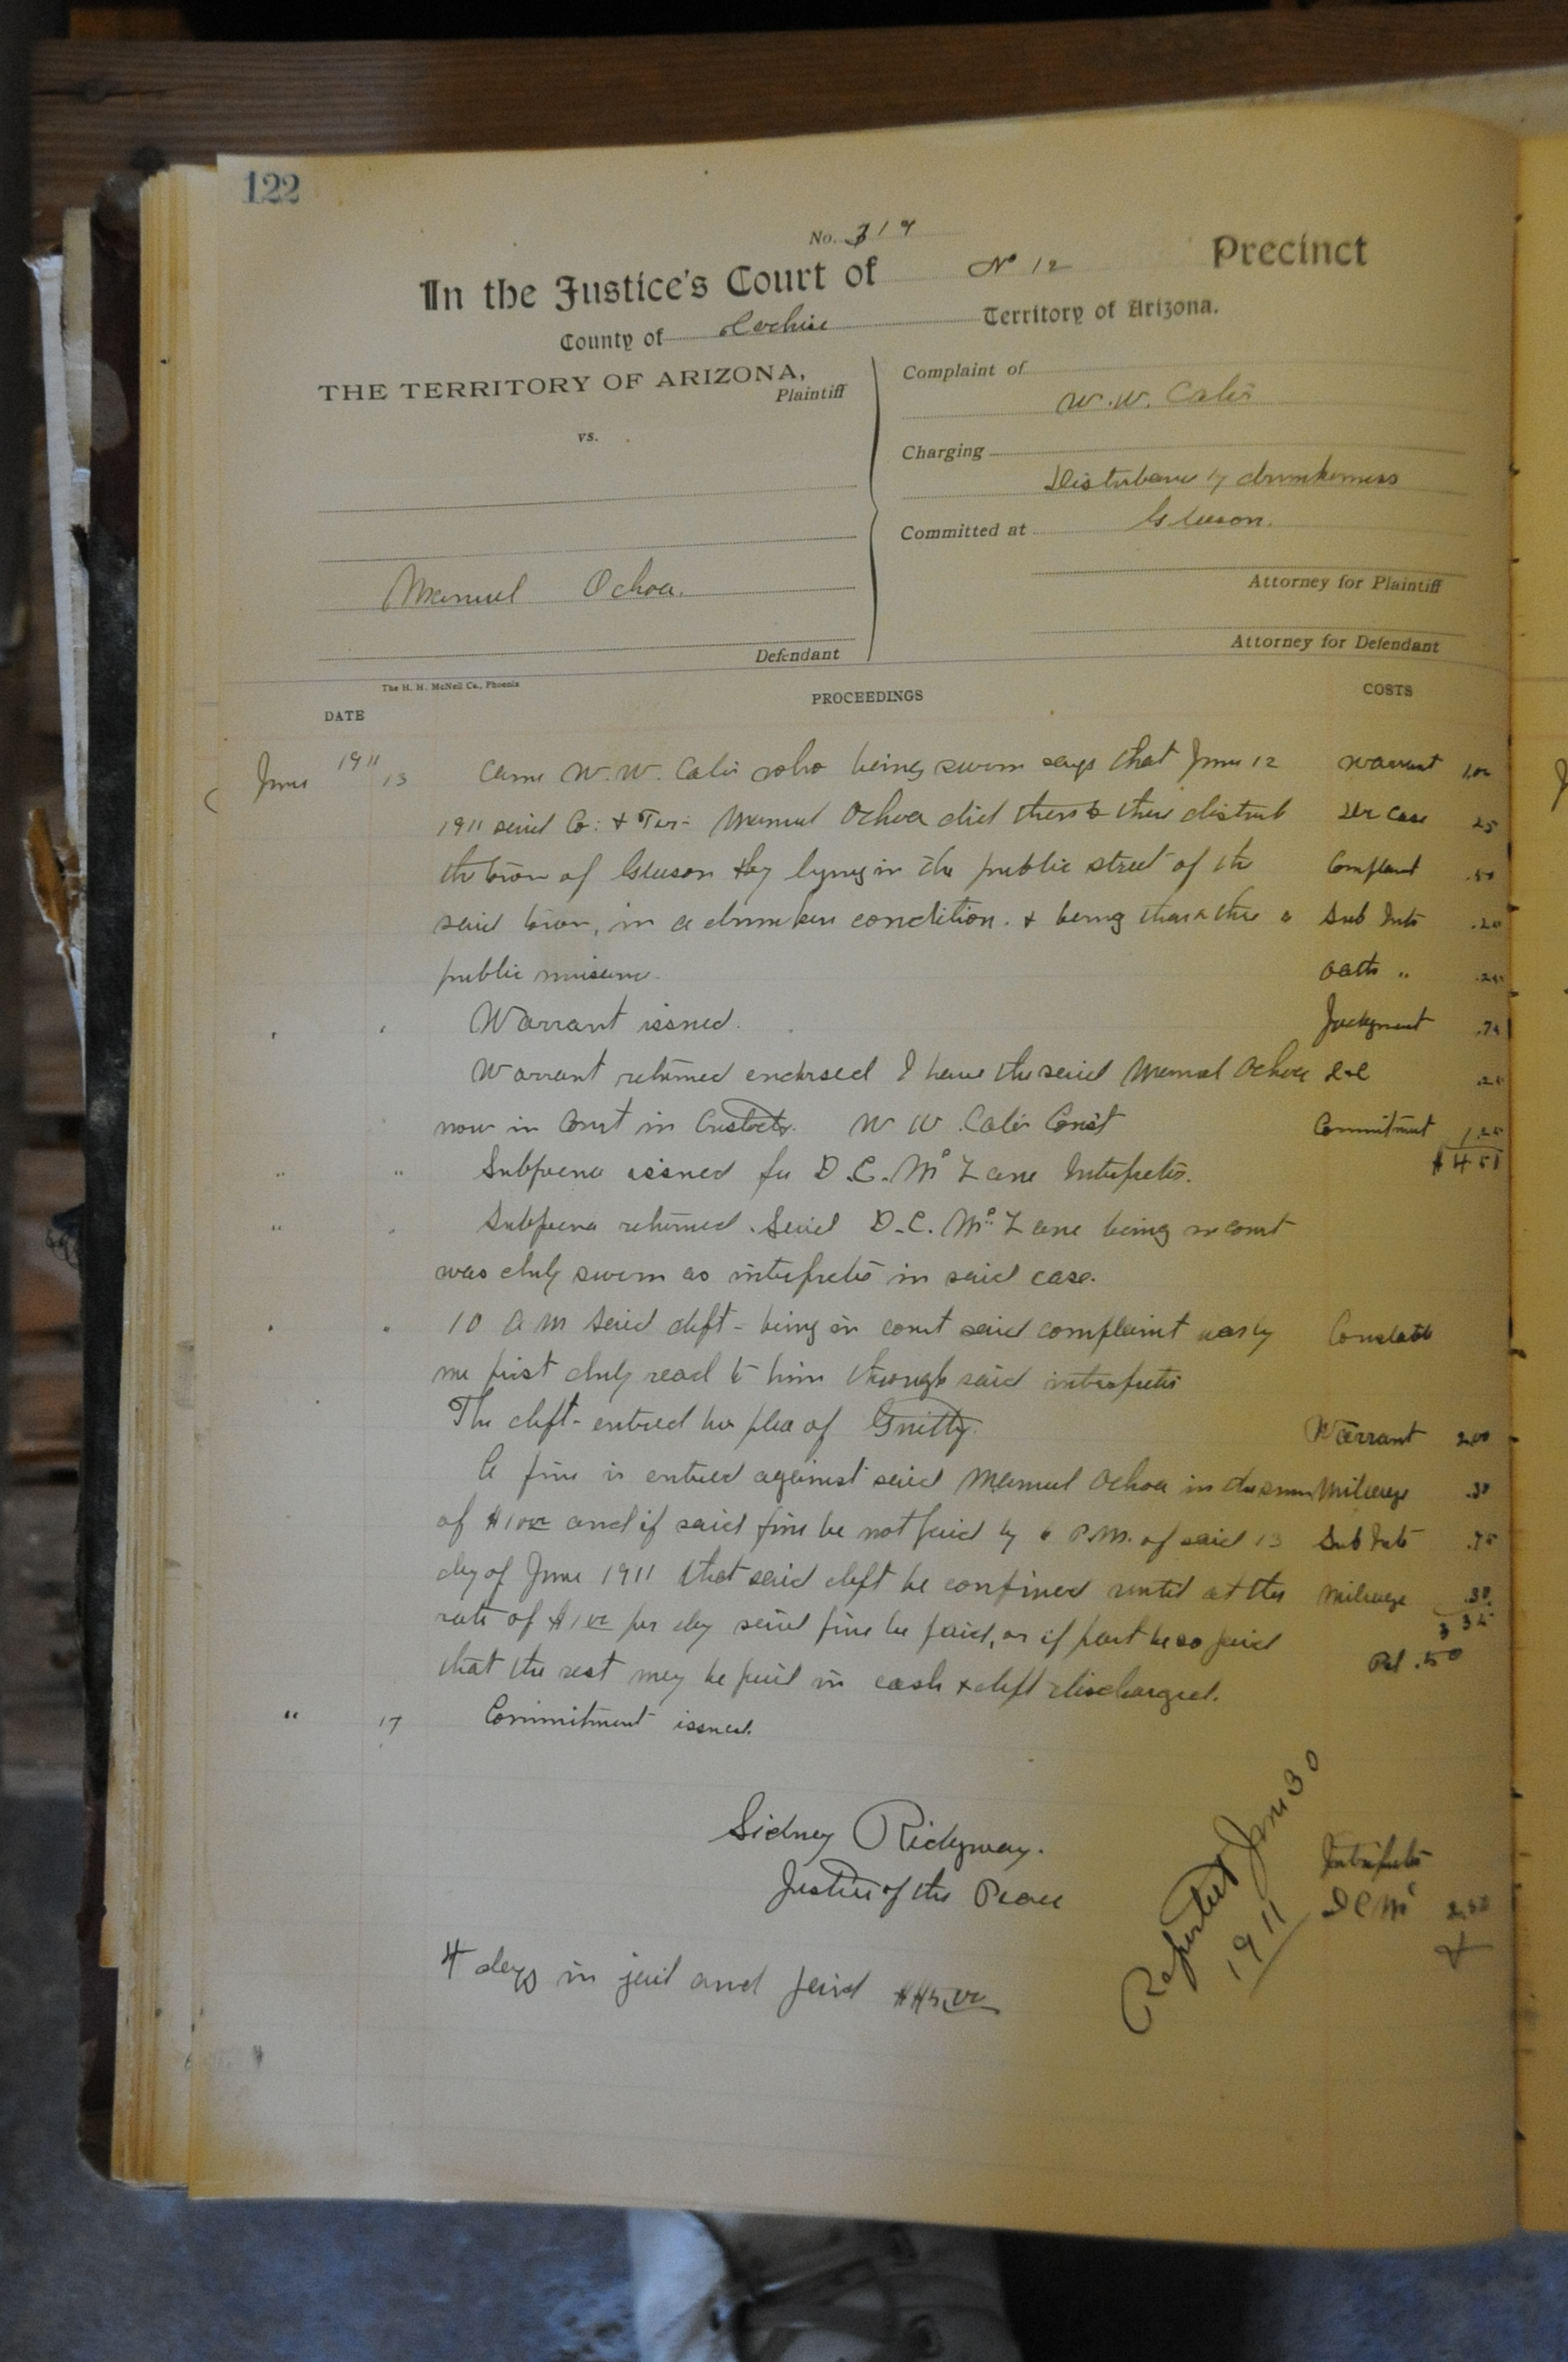 122
No. 319
In the Justice's Court of No 12 Precinct
County of Cochise Territory of Arizona.
THE TERRITORY OF ARIZONA,
Plaintiff
vs.
Manuel Ochoa.
Defendant
Complaint of
W. W. Cates
Charging
Disturbance by drunkenness
Committed at Gleeson.
Attorney for Plaintiff
Attorney for Defendant
The H. H. McNeil Co., Phoenix
DATE PROCEEDINGS COSTS
June 1911 13 Came W. W. Cates who being sworn says that June 12 Warrant 1.00
1911 said Co: & Ter- Manuel Ochoa did then & there disturb case 25
the town of Gleeson by lying in the public street of the Complaint .50
said town, in a drunken condition. & being then & there a Sub Inter .20
public nuisance. Oath " .25
" " Warrant issued. Judgment .75
Warrant returned endorsed I have the said Manuel Ochoa
now in Court in Custody. W W Cates Const Commitment 1.25
" " Subpoena issued for D. C. Mc Lane Interpreter. $4 51
" " Subpoena returned. Said D. C. Mc Lane being in court
was duly sworn as interpreter in said case.
" " 10 A M Said deft- being in court said complaint was by Constable
me first duly read to him through said interpreter
The deft- entered his plea of Guilty. Warrant 2.00
A fine is entered against said Manuel Ochoa in the sum Mileage .30
of and if said fine be not paid by 6 P.M. of said 13 Sub Inter .75
day of June 1911 that said deft be confined until at the Mileage .30
rate of $1 00 per day said fine be paid, or if part be so paid 3 35
that the rest may be paid in cash & deft discharged. Rel .50
" 17 Commitment issued.
Sidney Ridgway.
Justice of the Peace
Reported June 30
1911
Interpreter
D C Mc 2.50
4 days in jail and paid